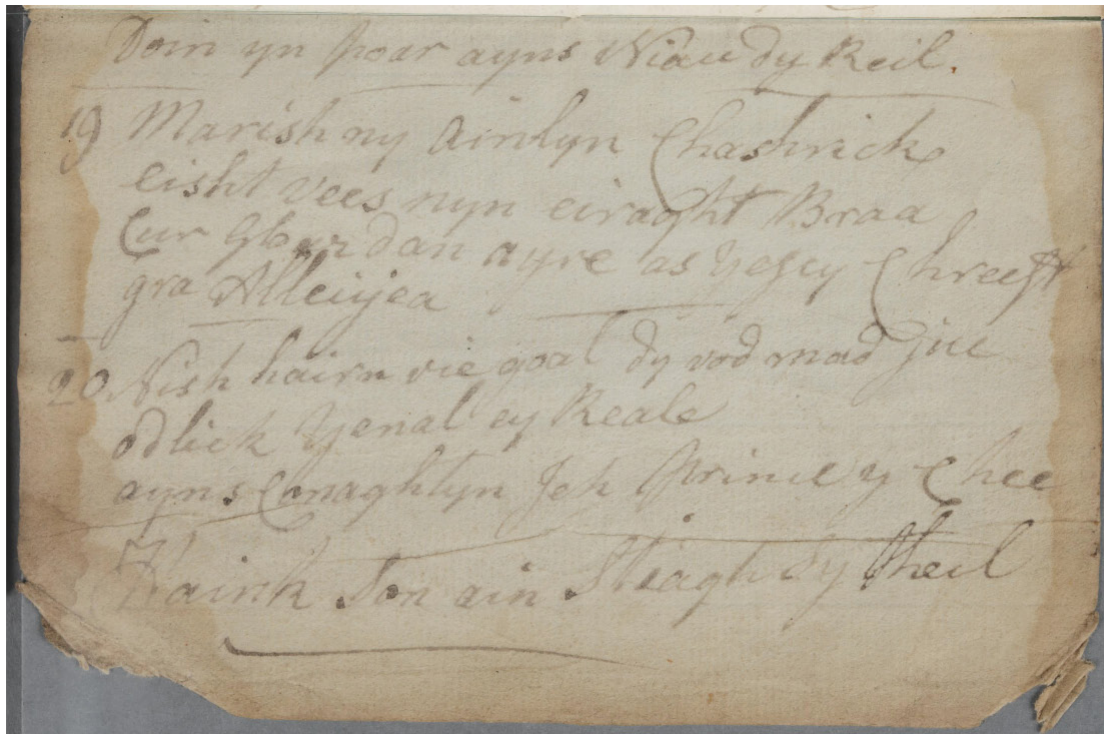 Doin yn poar ayns Niau dy Reil.
19 Marish ny ainlyn Chashrick
eisht vees nyn eiraght Braa
Cur Gloar dan ayre as yesey Chreest
gra Alleiyea
20 Nish hairn vie goal dy vod mad jiu
odlick yenal ey Reale
ayns Conaghtyn jeh Prince y Chee
Haink son ain Stiagh dy theil